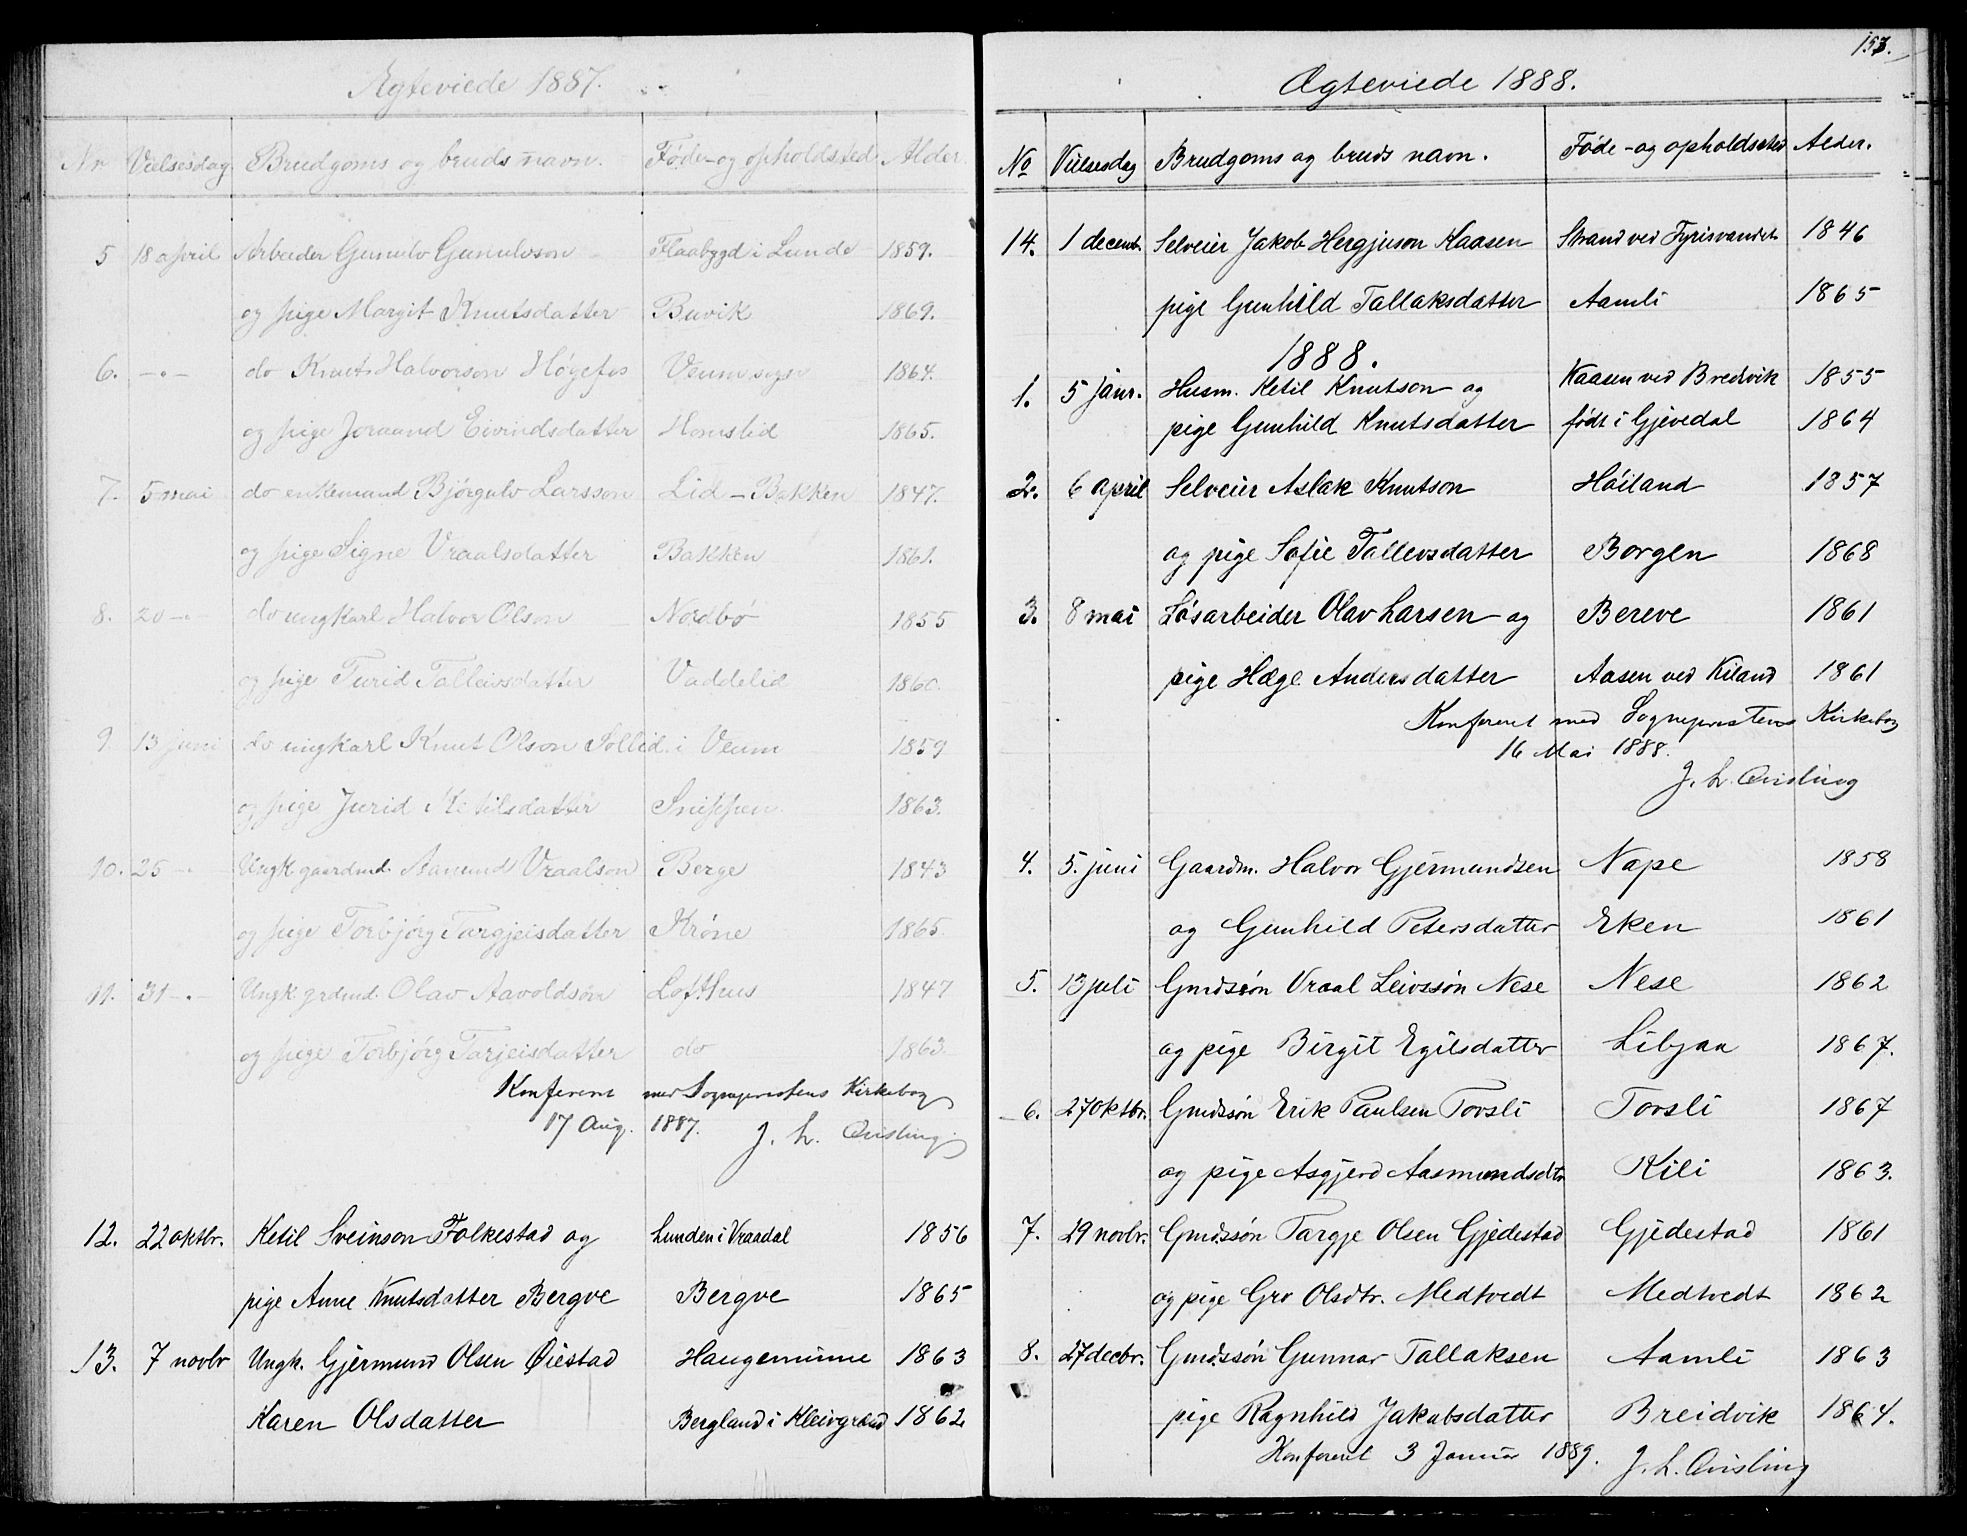 Ægteviede 1887.
Nr Vielsesdag Brudgoms og bruds navn. Føde- og opholdsted Alder.
5 18 april Arbeider Gunnulv Gunnulvson Flaabygd i Lunde 1859.
og pige Margit Knutsdatter Buvik 1869.
6. -"- do Knut Halvorson Høgefos Veum sogn 1864.
og pige Joraand Eivindsdatter Homslid 1865.
7. 5 mai do enkemand Bjørgulv Larsson Lid - Bakken 1847.
og pige Signe Vraalsdatter Bakken 1861.
8. 20 -"- do ungkarl Halvor Olson Nordbø 1855
og pige Turid Talleivsdatter Vaddelid 1860.
9. 13 juni do ungkarl Knut Olson Sollid i Veum 1859
og pige Jurid Ketilsdatter Snippen 1863.
10. 25 -"- Ungk. gaardmd. Aamund Vraalson Berge 1843
og pige Torbjørg Targjeisdatter Krône 1865.
11. 31 -"- Ungk. grdmd. Olav Aavoldsøn Lofthus 1847
og pige Torbjørg Tarjeisdatter do 1863.
Konfereret med Sogneprestens Kirkebog
17 Aug. 1887. J. L. Qvisling
12. 22 oktbr. Ketil Sveinson Folkestad og Lunden i Vraadal 1856
pige Anne Knutsdatter Bergve Bergve 1865
13. 7 novbr Ungk. Gjermund Olsen Øiestad Haugeminne 1863
Karen Olsdatter Bergland i Kleivgrend 1862
153.
Ægteviede 1888.
No Vielsesdag Brudgoms og bruds navn. Føde- og opholdssted Alder.
14. 1 decemb. Selveier Jakob Hergjuson Kaasen Strand ved Fyrisvandet 1846
pige Gunhild Tallaksdatter Aamli 1865
1888.
1. 5 janr. Husm. Ketil Knutson og Kaasen ved Bredvik 1855
pige Gunhild Knutsdatter født i Gjevedal 1864
2. 6 april Selveier Aslak Knutson Høiland 1857
og pige Sofie Tallevsdatter Borgen 1868
3. 8 mai Løsarbeider Olav Larsen og Bereve 1861
pige Hæge Andersdatter Aasen ved Kiland 1861
Konfereret med Sogneprestens Kirkebog
16 Mai 1888.
J. L. Qvisling
4. 5. juni Gaardm. Halvor Gjermundsen Nape 1858
og Gunhild Petersdatter Eken 1861
5. 13 juli Gmdssøn Vraal Leivssøn Nese Nese 1862
og pige Birgit Egilsdatter Libjaa 1867.
6. 27 oktbr. Gmdssøn Erik Paulsen Torsli Torsli 1867
og pige Asgjerd Aasmundsdtr Kili 1863.
7. 29 novbr. Gmdssøn Targje Olsen Gjedestad Gjedestad 1861
og pige Gro Olsdtr. Medtvedt Medtvedt 1862
8. 27 decbr. Gmdssøn Gunnar Tallaksen Aamli 1863
pige Ragnhild Jakobsdatter Breidvik 1864.
Konfereret 3 Januar 1889. J. L. Qvisling